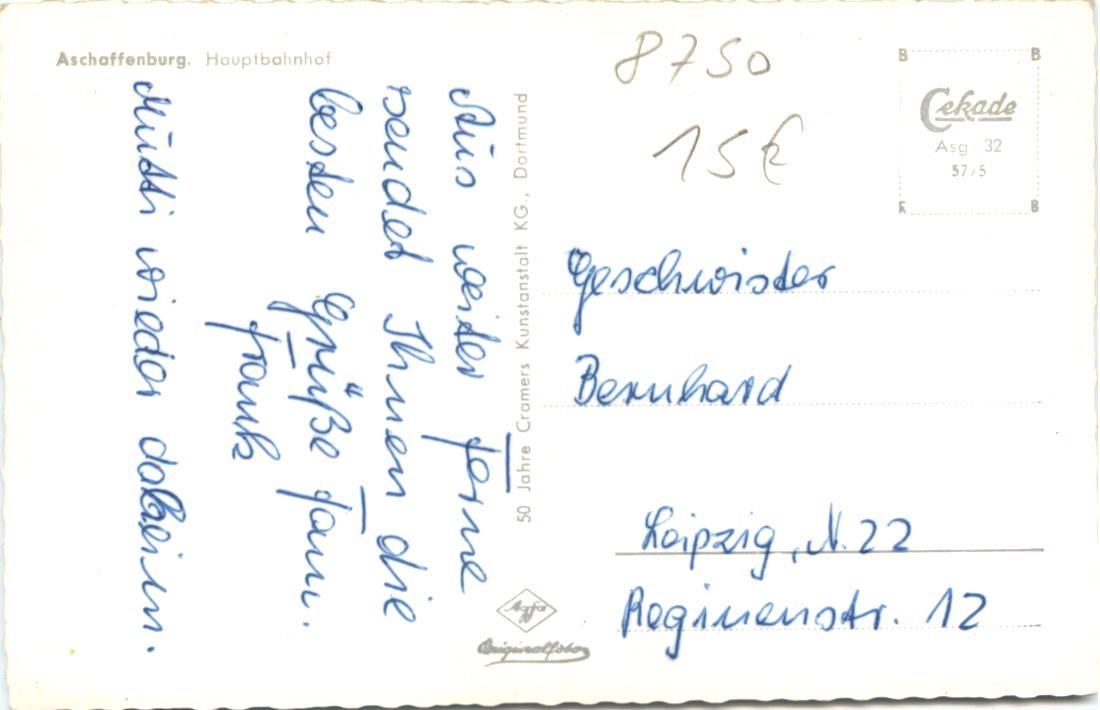 Aschaffenburg. Hauptbahnhof
8750
15 €
B B
Cekade
Asg 32
57/5
B
Aus weiter Ferne
sendet Ihnen die
besten Grüße Fam.
Frank
Mutti wieder daheim.
50 Jahre Cramers Kunstanstalt KG., Dortmund
Geschwister
Bernhard
Leipzig, N. 22
Reginenstr. 12
Agfa
Originalfoto